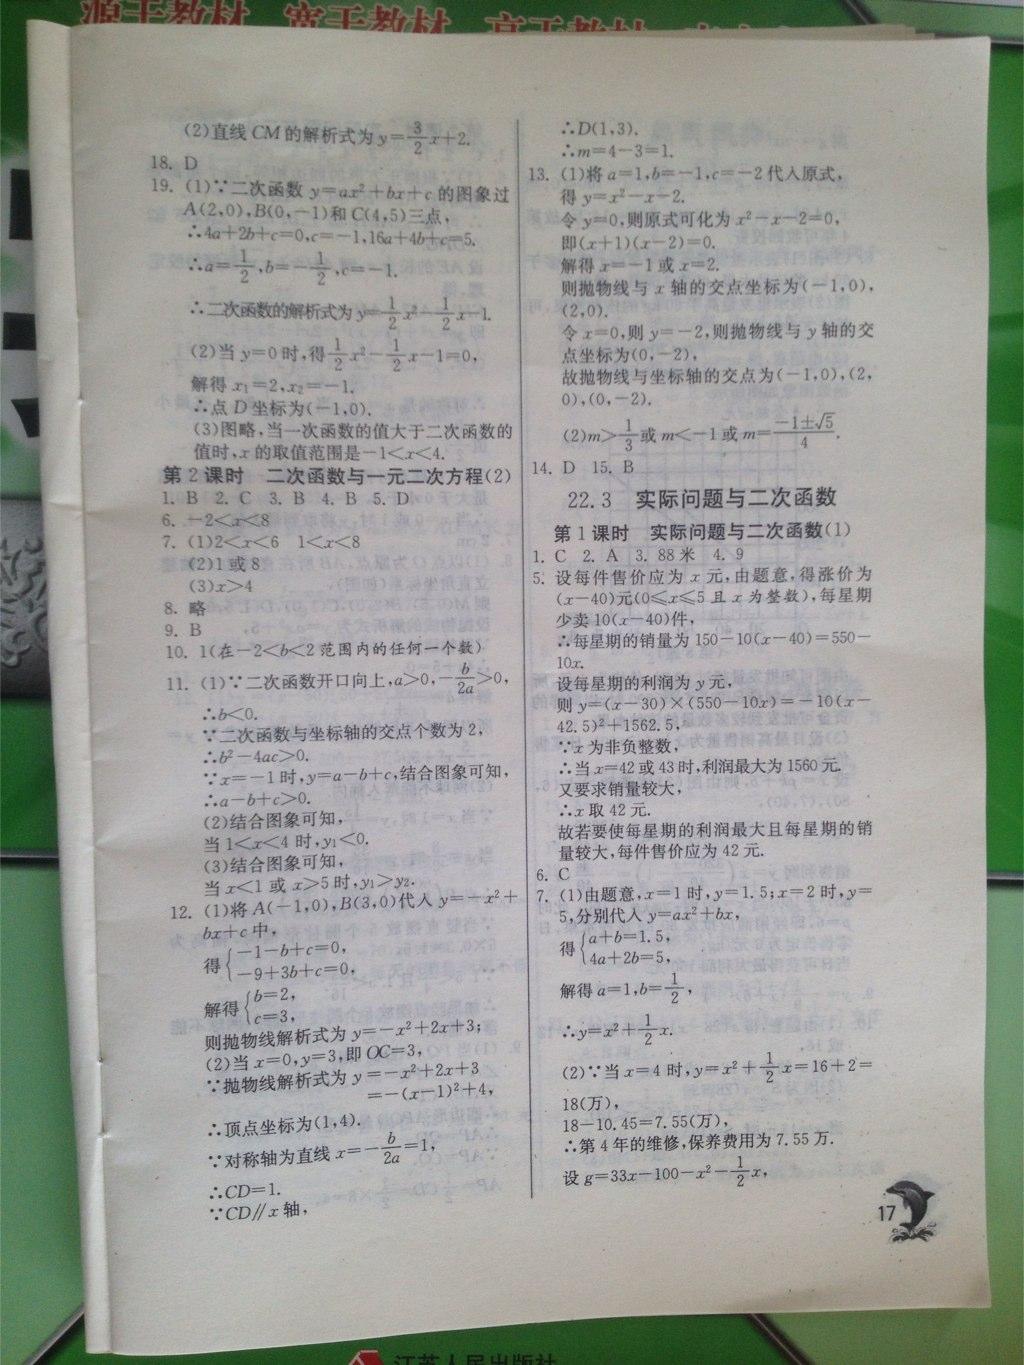 源于教材 宽于教材 高于教材
(2)直线 CM 的解析式为 y=3/2x+2.
18. D
19. (1)∵二次函数 y=ax²+bx+c 的图象过
A(2,0),B(0,-1)和 C(4,5)三点,
∴4a+2b+c=0,c=-1,16a+4b+c=5.
∴a=1/2,b=-1/2,c=-1.
∴二次函数的解析式为 y=1/2x²-1/2x-1.
(2)当 y=0 时,得1/2x²-1/2x-1=0,
解得 x₁=2,x₂=-1.
∴点 D 坐标为(-1,0).
(3)图略,当一次函数的值大于二次函数的
值时,x 的取值范围是-1<x<4.
第 2 课时 二次函数与一元二次方程(2)
1. B 2. C 3. B 4. B 5. D
6. -2<x<8
7. (1)2<x<6 1<x<8
(2)1或8
(3)x>4
8. 略
9. B
10. 1(在-2<b<2 范围内的任何一个数)
11. (1)∵二次函数开口向上,a>0,-b/2a>0,
∴b<0.
∵二次函数与坐标轴的交点个数为 2,
∴b²-4ac>0.
∵x=-1 时,y=a-b+c,结合图象可知,
∴a-b+c>0.
(2)结合图象可知,
当 1<x<4 时,y₁<0.
(3)结合图象可知,
当 x<1 或 x>5 时,y₁>y₂.
12. (1)将 A(-1,0),B(3,0)代入 y=-x²+
bx+c 中,
得{-1-b+c=0,
-9+3b+c=0,
解得{b=2,
c=3,
则抛物线解析式为 y=-x²+2x+3;
(2)当 x=0,y=3,即 OC=3,
∵抛物线解析式为 y=-x²+2x+3
=-(x-1)²+4,
∴顶点坐标为(1,4).
∵对称轴为直线 x=-b/2a=1,
∴CD=1.
∵CD∥x 轴,
∴D(1,3).
∴m=4-3=1.
13. (1)将 a=1,b=-1,c=-2 代入原式,
得 y=x²-x-2.
令 y=0,则原式可化为 x²-x-2=0,
即(x+1)(x-2)=0.
解得 x=-1 或 x=2.
则抛物线与 x 轴的交点坐标为(-1,0),
(2,0).
令 x=0,则 y=-2,则抛物线与 y 轴的交
点坐标为(0,-2),
故抛物线与坐标轴的交点为(-1,0),(2,
0),(0,-2).
(2)m>1/3或 m<-1 或 m=(-1±√5)/4.
14. D 15. B
22.3 实际问题与二次函数
第 1 课时 实际问题与二次函数(1)
1. C 2. A 3. 88 米 4. 9
5. 设每件售价应为 x 元,由题意,得涨价为
(x-40)元(0≤x≤5 且 x 为整数),每星期
少卖 10(x-40)件,
∴每星期的销量为 150-10(x-40)=550-
10x.
设每星期的利润为 y 元,
则 y=(x-30)×(550-10x)=-10(x-
42.5)²+1562.5,
∵x 为非负整数,
∴当 x=42 或 43 时,利润最大为 1560 元.
又要求销量较大,
∴x 取 42 元.
故若要使每星期的利润最大且每星期的销
量较大,每件售价应为 42 元.
6. C
7. (1)由题意,x=1 时,y=1.5;x=2 时,y=
5,分别代入 y=ax²+bx,
得{a+b=1.5,
4a+2b=5,
解得 a=1,b=1/2,
∴y=x²+1/2x.
(2)∵当 x=4 时,y=x²+1/2x=16+2=
18(万),
18-10.45=7.55(万),
∴第 4 年的维修,保养费用为 7.55 万.
设 g=33x-100-x²-1/2x,
17
江苏人民出版社